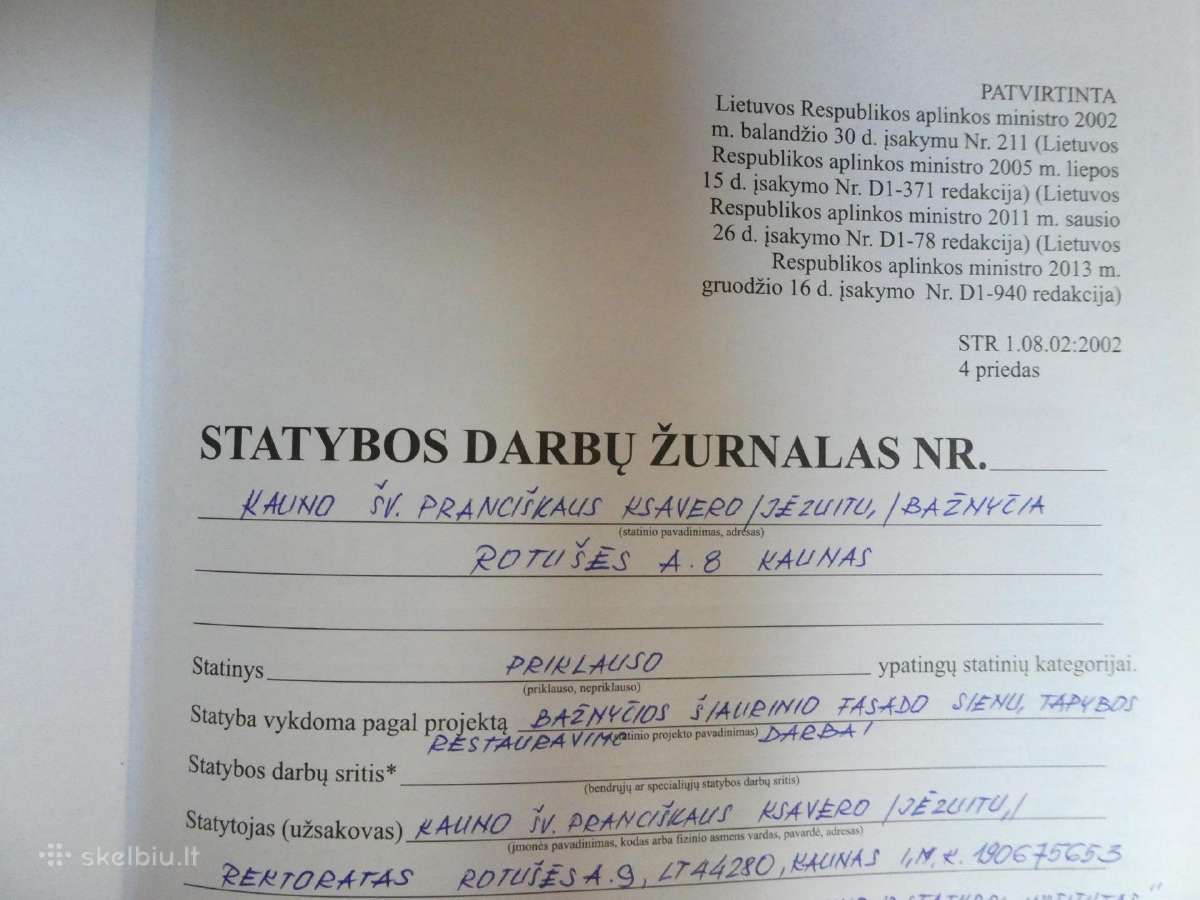 PATVIRTINTA
Lietuvos Respublikos aplinkos ministro 2002
m. balandžio 30 d. įsakymu Nr. 211 (Lietuvos
Respublikos aplinkos ministro 2005 m. liepos
15 d. įsakymo Nr. D1-371 redakcija) (Lietuvos
Respublikos aplinkos ministro 2011 m. sausio
26 d. įsakymo Nr. D1-78 redakcija) (Lietuvos
Respublikos aplinkos ministro 2013 m.
gruodžio 16 d. įsakymo Nr. D1-940 redakcija)
STR 1.08.02:2002
4 priedas
STATYBOS DARBŲ ŽURNALAS NR.
KAUNO ŠV. PRANCIŠKAUS KSAVERO /JĖZUITŲ/ BAŽNYČIA
(statinio pavadinimas, adresas)
ROTUŠĖS A. 8 KAUNAS
Statinys PRIKLAUSO ypatingų statinių kategorijai.
(priklauso, nepriklauso)
Statyba vykdoma pagal projektą BAŽNYČIOS ŠIAURINIO FASADO SIENŲ TAPYBOS
RESTAURAVIMO DARBAI
(statinio projekto pavadinimas)
Statybos darbų sritis*
(bendrųjų ar specialiųjų statybos darbų sritis)
Statytojas (užsakovas) KAUNO ŠV. PRANCIŠKAUS KSAVERO /JĖZUITŲ/
(įmonės pavadinimas, kodas arba fizinio asmens vardas, pavardė, adresas)
REKTORATAS ROTUŠĖS A. 9, LT44280, KAUNAS I,M,K. 190675653
skelbiu.lt